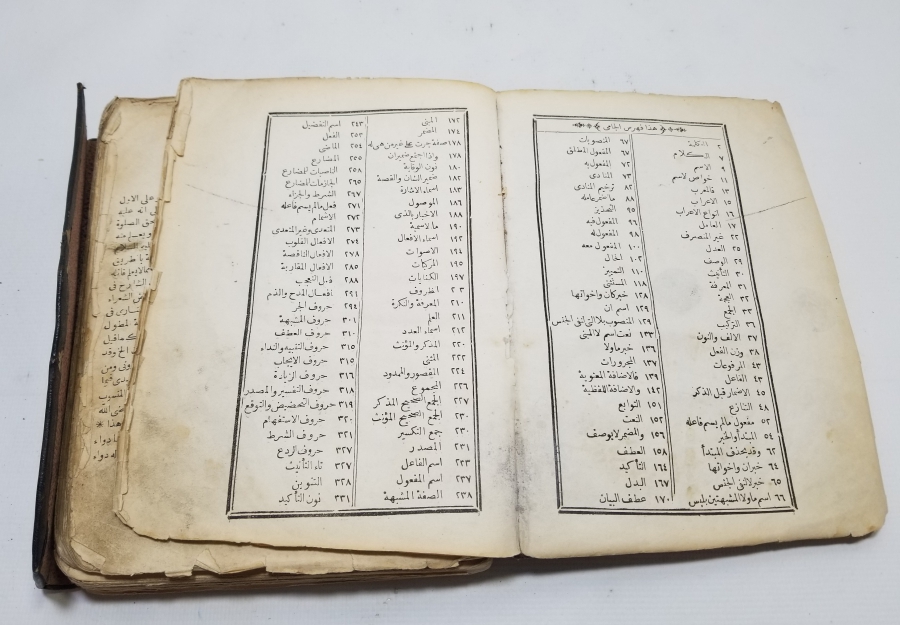 هذا فهرس الجامى
٢ الكلمة
٤ الكلام
٩ الاسم
١١ خواص لاسم
١٣ فالمعرب
١٥ الاعراب
١٦ انواع الاعراب
١٧ العامل
٢٢ غير المنصرف
٢٥ العدل
٢٩ الوصف
٣٠ التأنيث
٣١ المعرفة
٣٢ العجمة
٣٣ الجمع
٣٦ التركيب
٣٧ الالف والنون
٣٨ وزن الفعل
٤٣ المرفوعات
٤٣ الفاعل
٤٥ الاضمار قبل الذكر
٤٨ التنازع
٥٢ مفعول مالم يسم فاعله
٥٤ المبتدأ والخبر
٦٢ وقد يحذف المبتدأ
٦٤ خبر ان واخواتها
٦٥ خبر لا لنفى الجنس
٦٦ اسم ما ولا المشبهتين بليس
٦٧ المنصوبات
٦٧ المفعول المطلق
٧٢ المفعول به
٧٣ المنادى
٨٢ ترخيم المنادى
٨٨ ما ضمر عامله
٩٥ التحذير
٩٦ المفعول فيه
٩٨ المفعول له
١٠٠ المفعول معه
١٠٢ الحال
١١٠ التمييز
١١٨ المستثنى
١٢٨ خبر كان واخواتها
١٢٩ اسم ان
١٢٩ المنصوب بلا التى لنفى الجنس
١٣٣ نعت اسم لا المبنى
١٣٦ خبر ما ولا
١٣٧ المجرورات
١٣٩ فالاضافة المعنوية
١٤٢ والاضافة اللفظية
١٥١ التوابع
١٥٢ النعت
١٥٦ والمضمر لا يوصف
١٥٨ العطف
١٦٤ التأكيد
١٦٧ البدل
١٧٠ عطف البيان
١٧٢ المبنى
١٧٤ المضمر
١٧٨ صفة جرت على غير من هى له
١٧٨ واذا اجتمع ضميران
١٨٠ نون الوقاية
١٨٢ ضمير الشان والقصة
١٨٣ اسماء الاشارة
١٨٦ الموصول
١٨٨ الاخبار بالذى
١٩٠ ما لاسمية
١٩٢ اسماء الافعال
١٩٤ الاصوات
١٩٥ المركبات
١٩٧ الكنايات
٢٠٣ الظروف
٢١٠ المعرفة والنكرة
٢١١ العلم
٢١٢ اسماء العدد
٢٢٠ المذكر والمؤنث
٢٢٢ المثنى
٢٢٤ المقصور والممدود
٢٢٦ المجموع
٢٢٧ الجمع الصحيح المذكر
٢٣٠ الجمع الصحيح المؤنث
٢٣٠ جمع التكسير
٢٣١ المصدر
٢٣٣ اسم الفاعل
٢٣٧ اسم المفعول
٢٣٨ الصفة المشبهة
٢٤٣ اسم التفضيل
٢٥٢ الفعل
٢٥٤ الماضى
٢٥٥ المضارع
٢٥٨ الناصبات للمضارع
الجازمات للمضارع
الشرط والجزاء
٢٧١ فعل مالم يسم فاعله
٢٧٢ الاشمام
٢٧٣ المتعدى وغير المتعدى
٢٧٤ الافعال القلوب
٢٧٨ الافعال الناقصة
٢٨٥ الافعال المقاربة
٢٨٨ فعل التعجب
٢٩١ افعال المدح والذم
٢٩٤ حروف الجر
٣٠١ حروف المشبهة
٣١٠ حروف العطف
٣١٥ حروف التنبيه والنداء
٣١٥ حروف الايجاب
٣١٦ حروف الزيادة
٣١٨ حروف التفسير والمصدر
٣١٩ حروف التحضيض والتوقع
٣٢٠ حروف الاستفهام
٣٢١ حروف الشرط
٣٢٧ حروف الردع
٣٢٧ تاء التأنيث
٣٢٨ التنوين
٣٣١ نون التأكيد